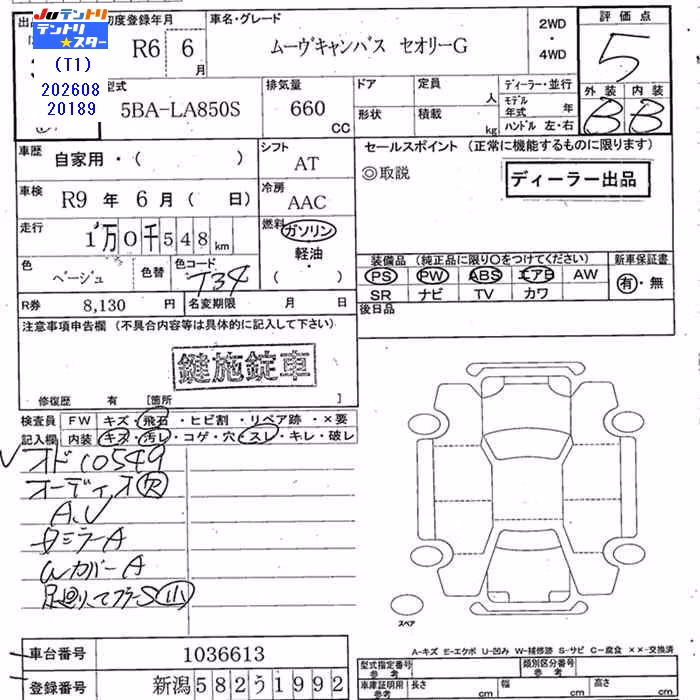 出品 初度登録年月 車名・グレード 2WD ・ 4WD 評価点
JUテントリ
テントリ★スター
(T1)
202608
20189
R6 6月 ムーヴキャンバス セオリーG 5
型式 排気量 ドア 定員 人 ディーラー・並行 外装 内装
5BA-LA850S 660 CC 形状 積載 kg モデル年式 年 B B
ハンドル 左・右
車歴 自家用・( ) シフト AT セールスポイント (正常に機能するものに限ります)
◎取説 ディーラー出品
車検 R9年 6月( 日) 冷房 AAC
走行 1万0千548km 燃料 ガソリン 軽油・( )
装備品 (純正品に限り○をつけてください) 新車保証書
色 ベージュ 色替 色コード T34 PS PW ABS エアB AW 有・無
SR ナビ TV カワ
R券 8,130 円 名変期限 月 日 後日品
注意事項申告欄 (不具合内容等は具体的に記入して下さい)
鍵施錠車
修復歴 有 [箇所 ]
検査員 FW キズ・飛石・ヒビ割・リペア跡・×要
記入欄 内装 キズ・汚レ・コゲ・穴・スレ・キレ・破レ
オド10549
A.U
ミラーA
WカバーA
スペア
A-キズ E-エクボ U-凹み W-補修跡 S-サビ C-腐食 ××-交換済
車台番号 1036613 型式指定番号 参考 類別区分番号 参考
登録番号 新潟582う1992 車庫証明用 参考 長さ cm 幅 cm 高さ cm